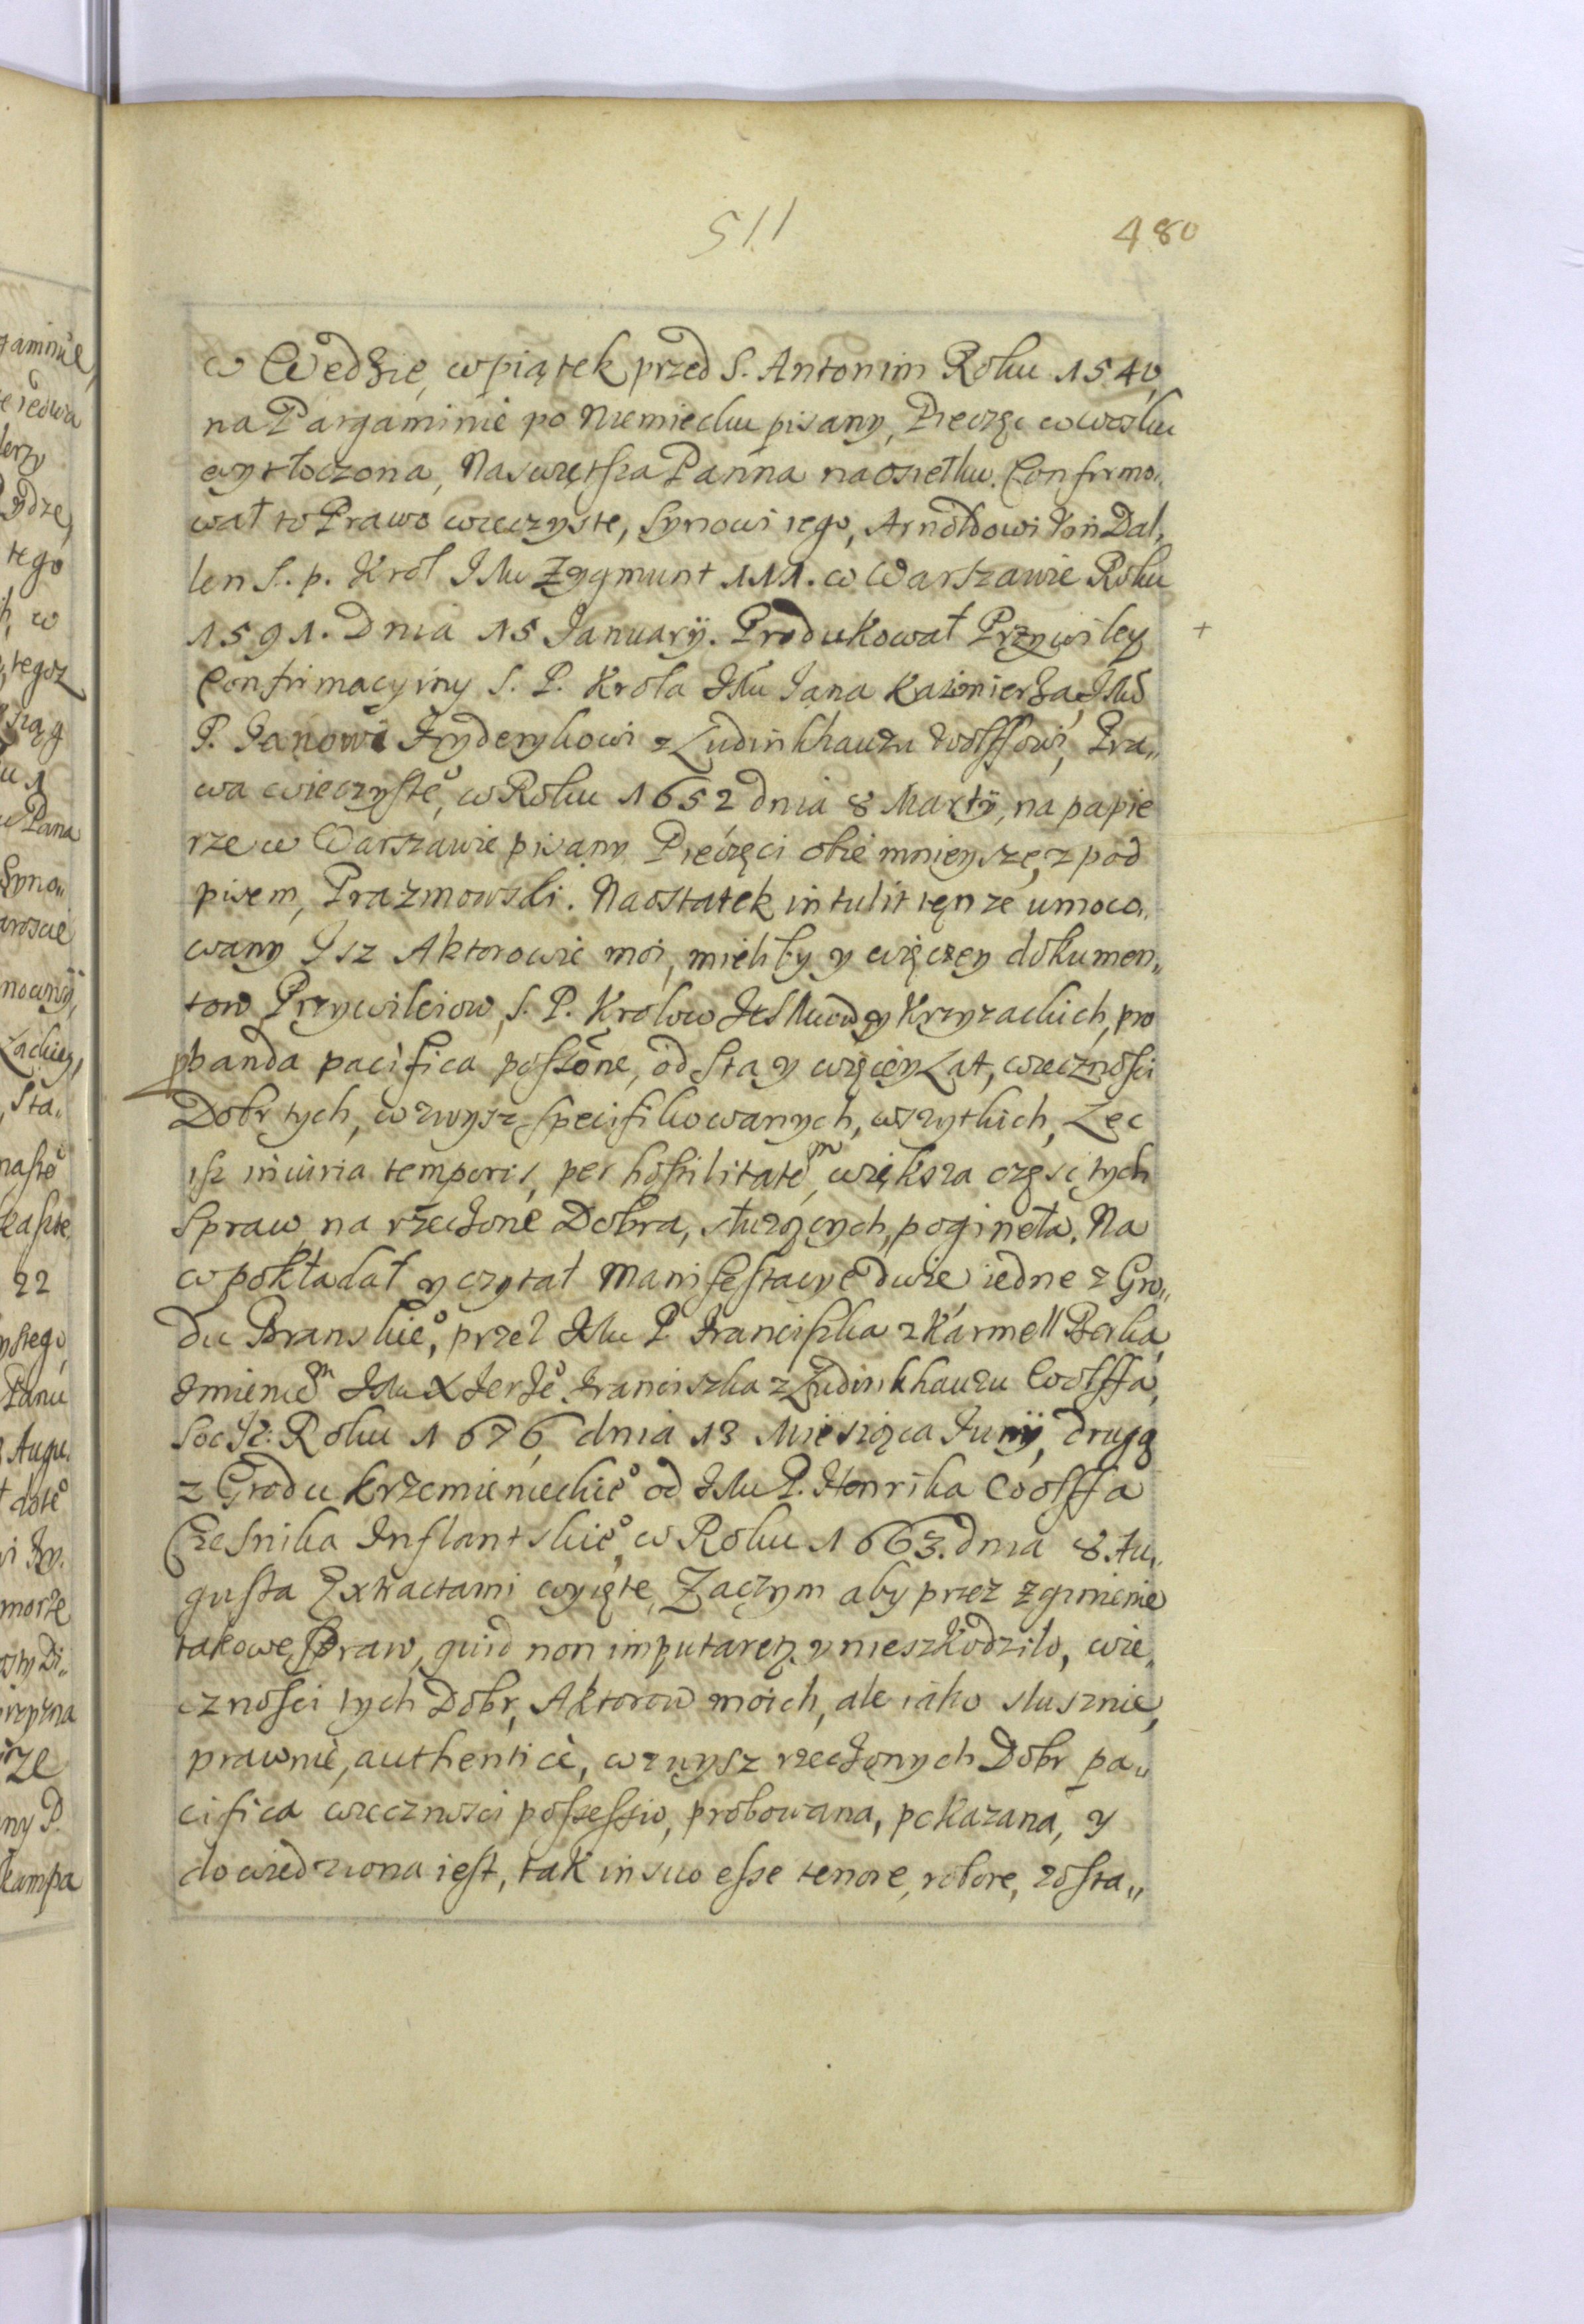 511
480
w Wedzie, w piątek przed S. Antonim Roku 1540,
na Pargaminie po Niemiecku pisany, Pieczęc w wosku
wytłoczona, Naswiętsza Panna na osiełku. Confirmo„
wał to Prawo wieczyste, Synowi iego, Arnoldowi Fon Dal„
len S. p. Krol JMc Zygmunt 111. w Warszawie Roku
1591. Dnia 15 January. Produkował Przywiley
Confirmacyiny S. P. Krola JMci Jana Kazimierza, JMo
P. Janowi Fryderykowi z Ludinkhauzu Wolffowi, Pra„
wa wieczysteo, w Roku 1652 dnia 8 Marty, na papie
rze w Warszawie pisany Pieczęci obie mnieysze, z pod
pisem, Prazmowski. Naostatek intulit tęnze umoco„
wany Isz Aktorowie moi, mieliby y więczey dokumen„
tow Przywileiow, S. P. Krolow Ich Mciow y Krzyzackich, pro
probanda pacifica possone, od sta y więcey Lat, wiecznosci
Dobr tych, wzwysz specifikowanych, wszytkich, Lec
isz iniuria temporis, per hostilitatem, większa częsc tych
Spraw, na rzeczone Dobra, słuzących, pogineła. Na
co pokładał y czytał Manifestacye dwie iedne z Gro„
du Branskieo, przez JMc P. Franciszka z Karmell Borka,
Imieniem JMc X Jerzeo Franciszka z Ludinkhauzu Wolffa,
Soc Js: Roku 1676 dnia 13 Miesiąca Juny, drugą
z Grodu Krzemienieckieo od JMc P. Henrika Wolffa
Czesnika Inflantskieo, w Roku 1663. dnia 8. Au„
gusta Extractami wyięte, Zaczym aby przez zginienie
takowe, Spraw, quid non imputaretz y nieszkodziło, wie„
cznosci tych Dobr, Aktorow moich, ale iako słusznie,
prawnie, authentice, wzwysz rzeczonych Dobr pa„
cifica wiecznosci possessio, probowana, pokazana, y
dowiedziona iest, tak in suo esse tenore, robore, zosta„